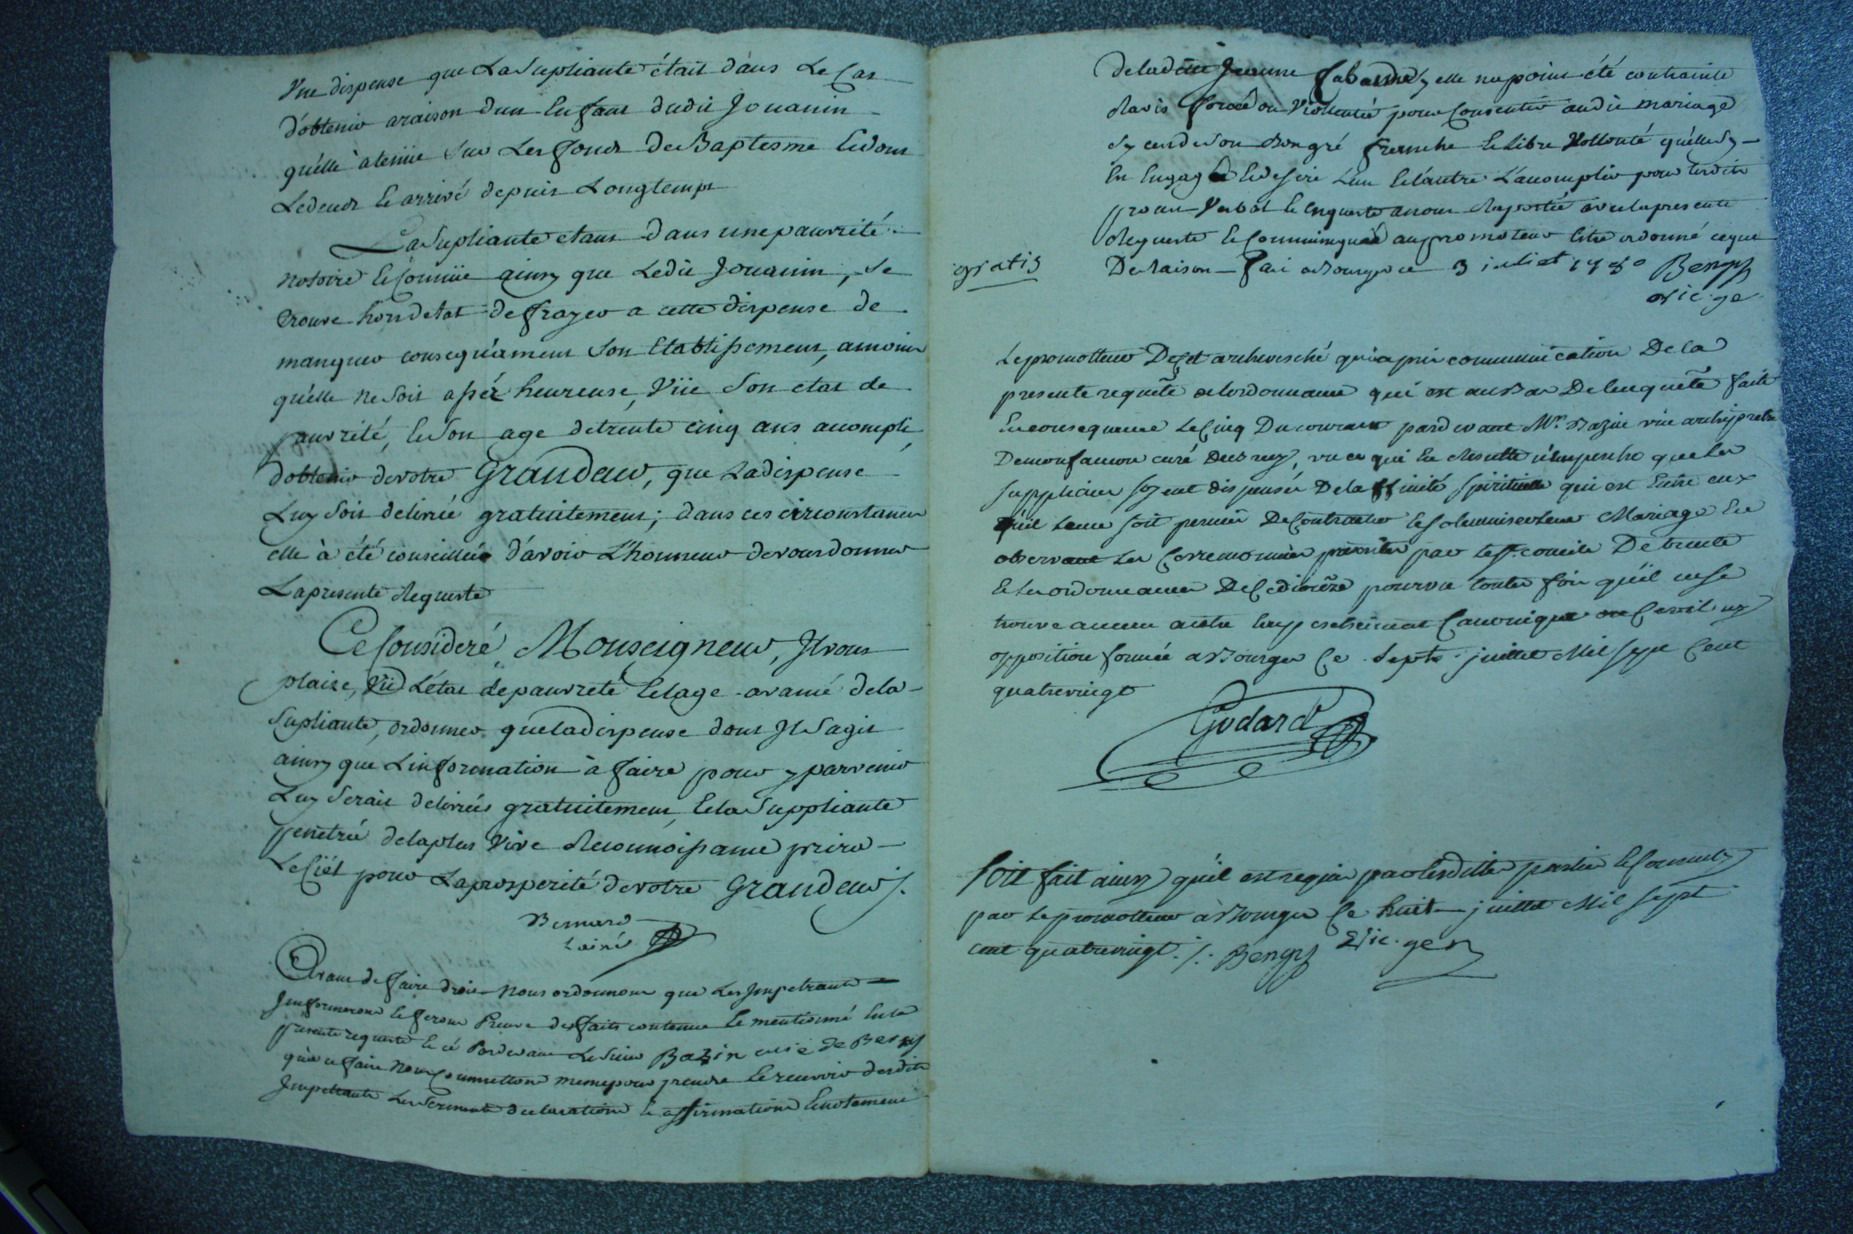 Une dispense que La Supliante était dans Le Cas
d'obtenir araison dun Enfant dudit Jouanin
qu'elle à tenüe Sur Les fonds De Baptesme Et dont
Le deceds Est arrivé depuis Longtemps
La Supliante etant dans une pauvrété
notoire Et Connüe ainsy que Ledit Jouanin, Se
trouve hors detat defrayer a cette dispense de
manquer consequament Son Etablissement, amoins
qu'elle ne Soit assés heureuse, Vüe Son etat de
pauvrété, Et Son age de trente cinq ans accomplis
d'obtenir de votre Grandeur, que La dispense
Luy Soit delivrée gratuitement; dans ces circonstances
elle à été conseillée d'avoir L'honneur de vous donner
La presente Requeste
Ce Consideré, Monseigneur, Il vous
plaise, Vu L'état de pauvreté Et Lage avancé de la
Supliante, ordonner que La dispense dont Il Sagit
ainsy que Linformation à faire pour y parvenir
Luy Serait delivrées gratuitement, Et la Suppliante
penetrée de la plus Vive Reconnoissance priera
Le Ciel pour La prosperité de votre Grandeur /.
Bernard
Lainé
Avant de faire droit nous ordonnons que Les Impetrants
Informeront Et feront Preuve des faits contenus Et mentionné En la
presente requeste Et ce Pardevant Le Sieur Bazin curé de Berry
qu'a ce faire Nous Commettons mesme pour prendre Et recevoir desdits
Impetrants Les Serments declarations Et affirmations Et notament
de ladite Jeanne Cabarde, Sy elle na point été contrainte
Ravis forcée ou Violentée pour Consentir audit mariage
Sy cest de Son Bon gré franche Et Libre Vollonté qu'elle Sy
En Engagé Et desire Lun Et Lautre Laccomplir pour Lesdits
procès Verbal Et Enqueste a nous Raportée avec la presente
Requeste Et Communiquée au promoteur Estre ordonné ce que
De Raison Fait a Bourges ce 3 juliet 1780 Bengy
vic. ge
gratis
Le promotteur De cet archevesché qui a pris communication De la
presente requête de lordonnance qui est au Bas De lenquête faite
En consequence Le Cinq Du courant pardevant Mr. Bazin vice archiprêtre
De montfaucon curé De Bery, vu ce qui En Resulte n'Empesche que Les
supplians soyent dispensés De laffinité spirituelle qui est Entre eux
quil Leur soit permis De Contracter Et solemniser Leur Mariage En
observant Les Ceremonies prescrites par le St. concile De trente
Et Les ordonnances De Ce diocèse pourvu toutes fois qu'il ne se
trouve aucun autre Empeschement Canonique ou Civil ny
opposition formée a Bourges Ce Sept juillet Mil sept Cent
quatrevingt
Godard
Soit fait ainsy qu'il est requis par lesdittes parties Et Consenty
par Le promotteur à Bourges Ce huit juillet Mil Sept
cent quatrevingt. /. Bengy Vic. gen